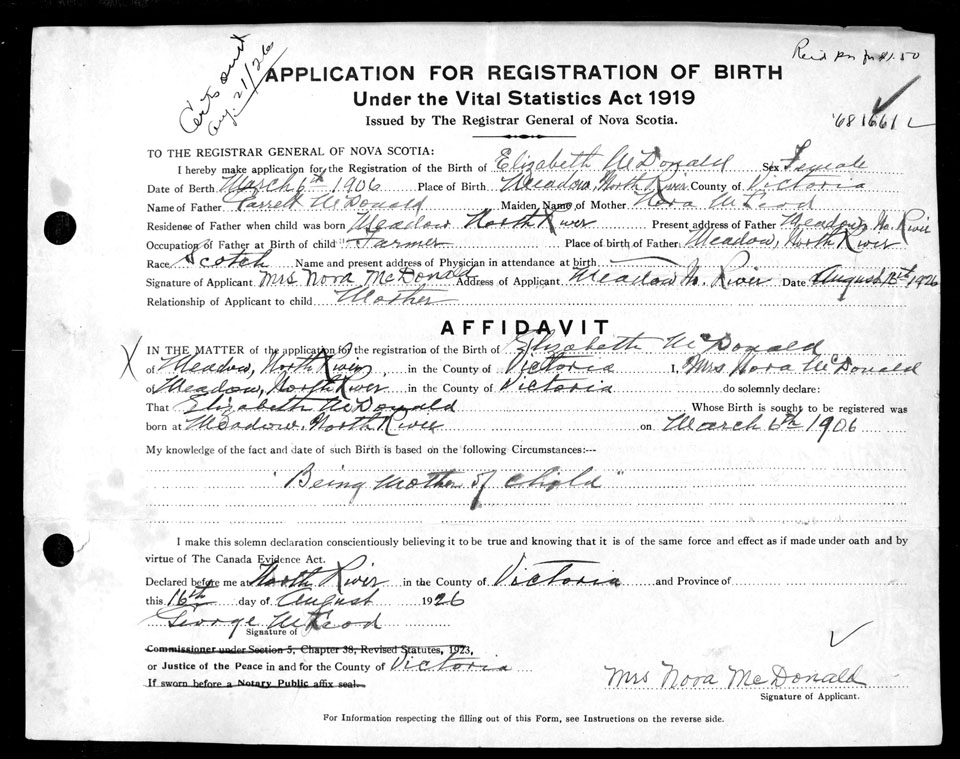 Certs sent
Aug. 21/26
Rec'd for $1.50
APPLICATION FOR REGISTRATION OF BIRTH
Under the Vital Statistics Act 1919
Issued by The Registrar General of Nova Scotia.
TO THE REGISTRAR GENERAL OF NOVA SCOTIA:
I hereby make application for the Registration of the Birth of Elizabeth McDonald Sex Female
Date of Berth March 6th 1906 Place of Birth Meadow, North River County of Victoria
Name of Father McDonald Maiden Name of Mother Nora McLeod
Residense of Father when child was born Meadow North River Present address of Father Meadow, No. River
Occupation of Father at Birth of child "Farmer Place of birth of Father, Meadow, North River
Race Scotch Name and present address of Physician in attendance at birth
Signature of Applicant Mrs Nora McDonald Address of Applicant Meadow No. River Date August 1926
Relationship of Applicant to child Mother
AFFIDAVIT
X IN THE MATTER of the application for the registration of the Birth of Elizabeth McDonald
of Meadow, North River, in the County of Victoria I, Mrs Nora McDonald
of Meadow, North River in the County of Victoria do solemnly declare:
That Elizabeth McDonald Whose Birth is sought to be registered was
born at Meadow, North River on March 6th 1906
My knowledge of the fact and date of such Birth is based on the following Circumstances:—
"Being Mother of Child"
I make this solemn declaration conscientiously believing it to be true and knowing that it is of the same force and effect as if made under oath and by
virtue of The Canada Evidence Act.
Declared before me at North River in the County of Victoria and Province of
this 16th day of August 1926
George McLeod
Signature of
Commissioner under Section 5, Chapter 38, Revised Statutes, 1923,
or Justice of the Peace in and for the County of Victoria
If sworn before a Notary Public affix seal.
Mrs Nora McDonald
Signature of Applicant.
For Information respecting the filling out of this Form, see Instructions on the reverse side.